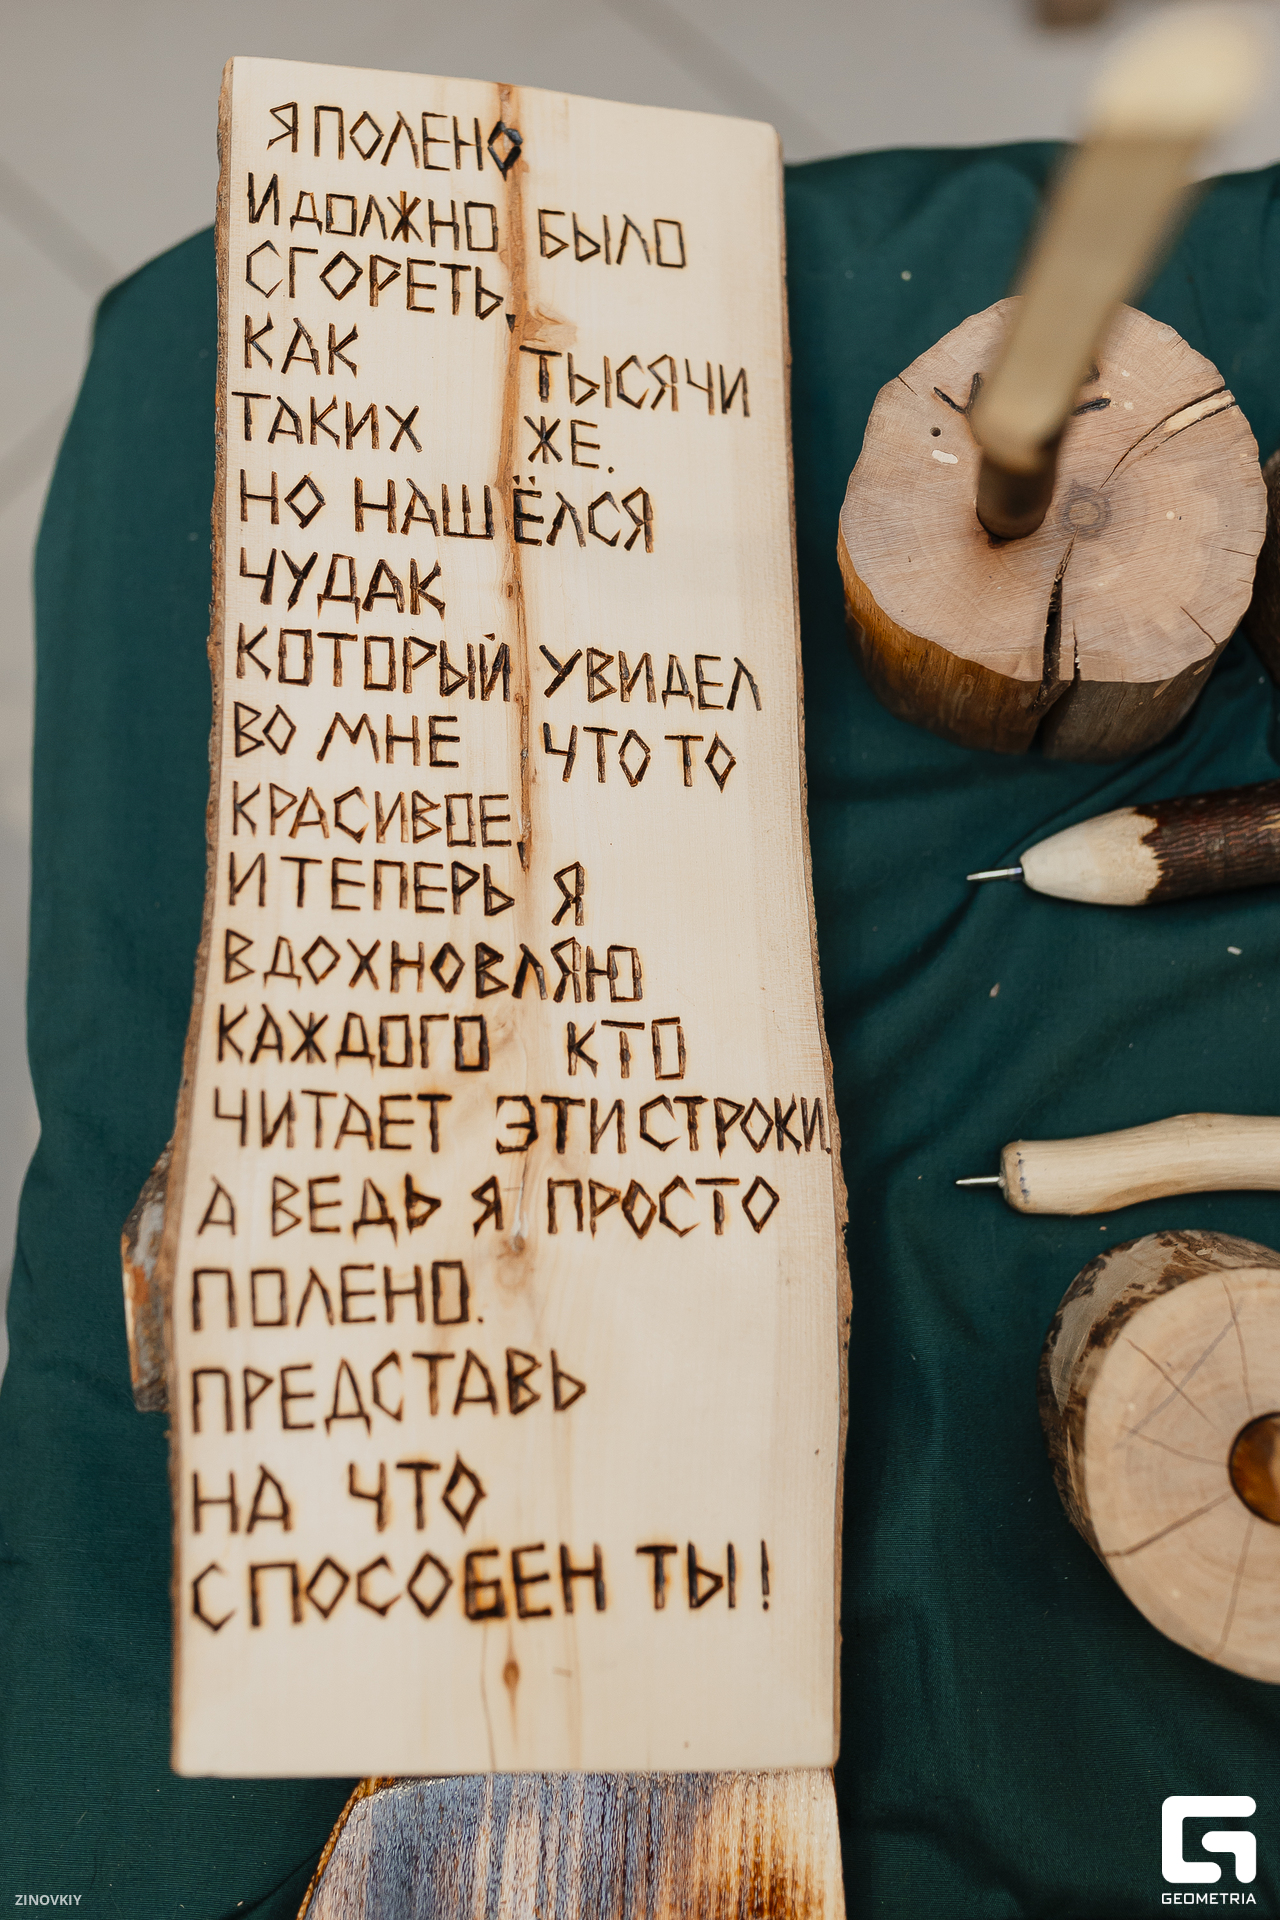 Я ПОЛЕНО
И ДОЛЖНО БЫЛО
СГОРЕТЬ,
КАК ТЫСЯЧИ
ТАКИХ ЖЕ.
НО НАШЁЛСЯ
ЧУДАК
КОТОРЫЙ УВИДЕЛ
ВО МНЕ ЧТО ТО
КРАСИВОЕ,
И ТЕПЕРЬ Я
ВДОХНОВЛЯЮ
КАЖДОГО КТО
ЧИТАЕТ ЭТИ СТРОКИ.
А ВЕДЬ Я ПРОСТО
ПОЛЕНО.
ПРЕДСТАВЬ
НА ЧТО
СПОСОБЕН ТЫ!
ZINOVKIY
GEOMETRIA